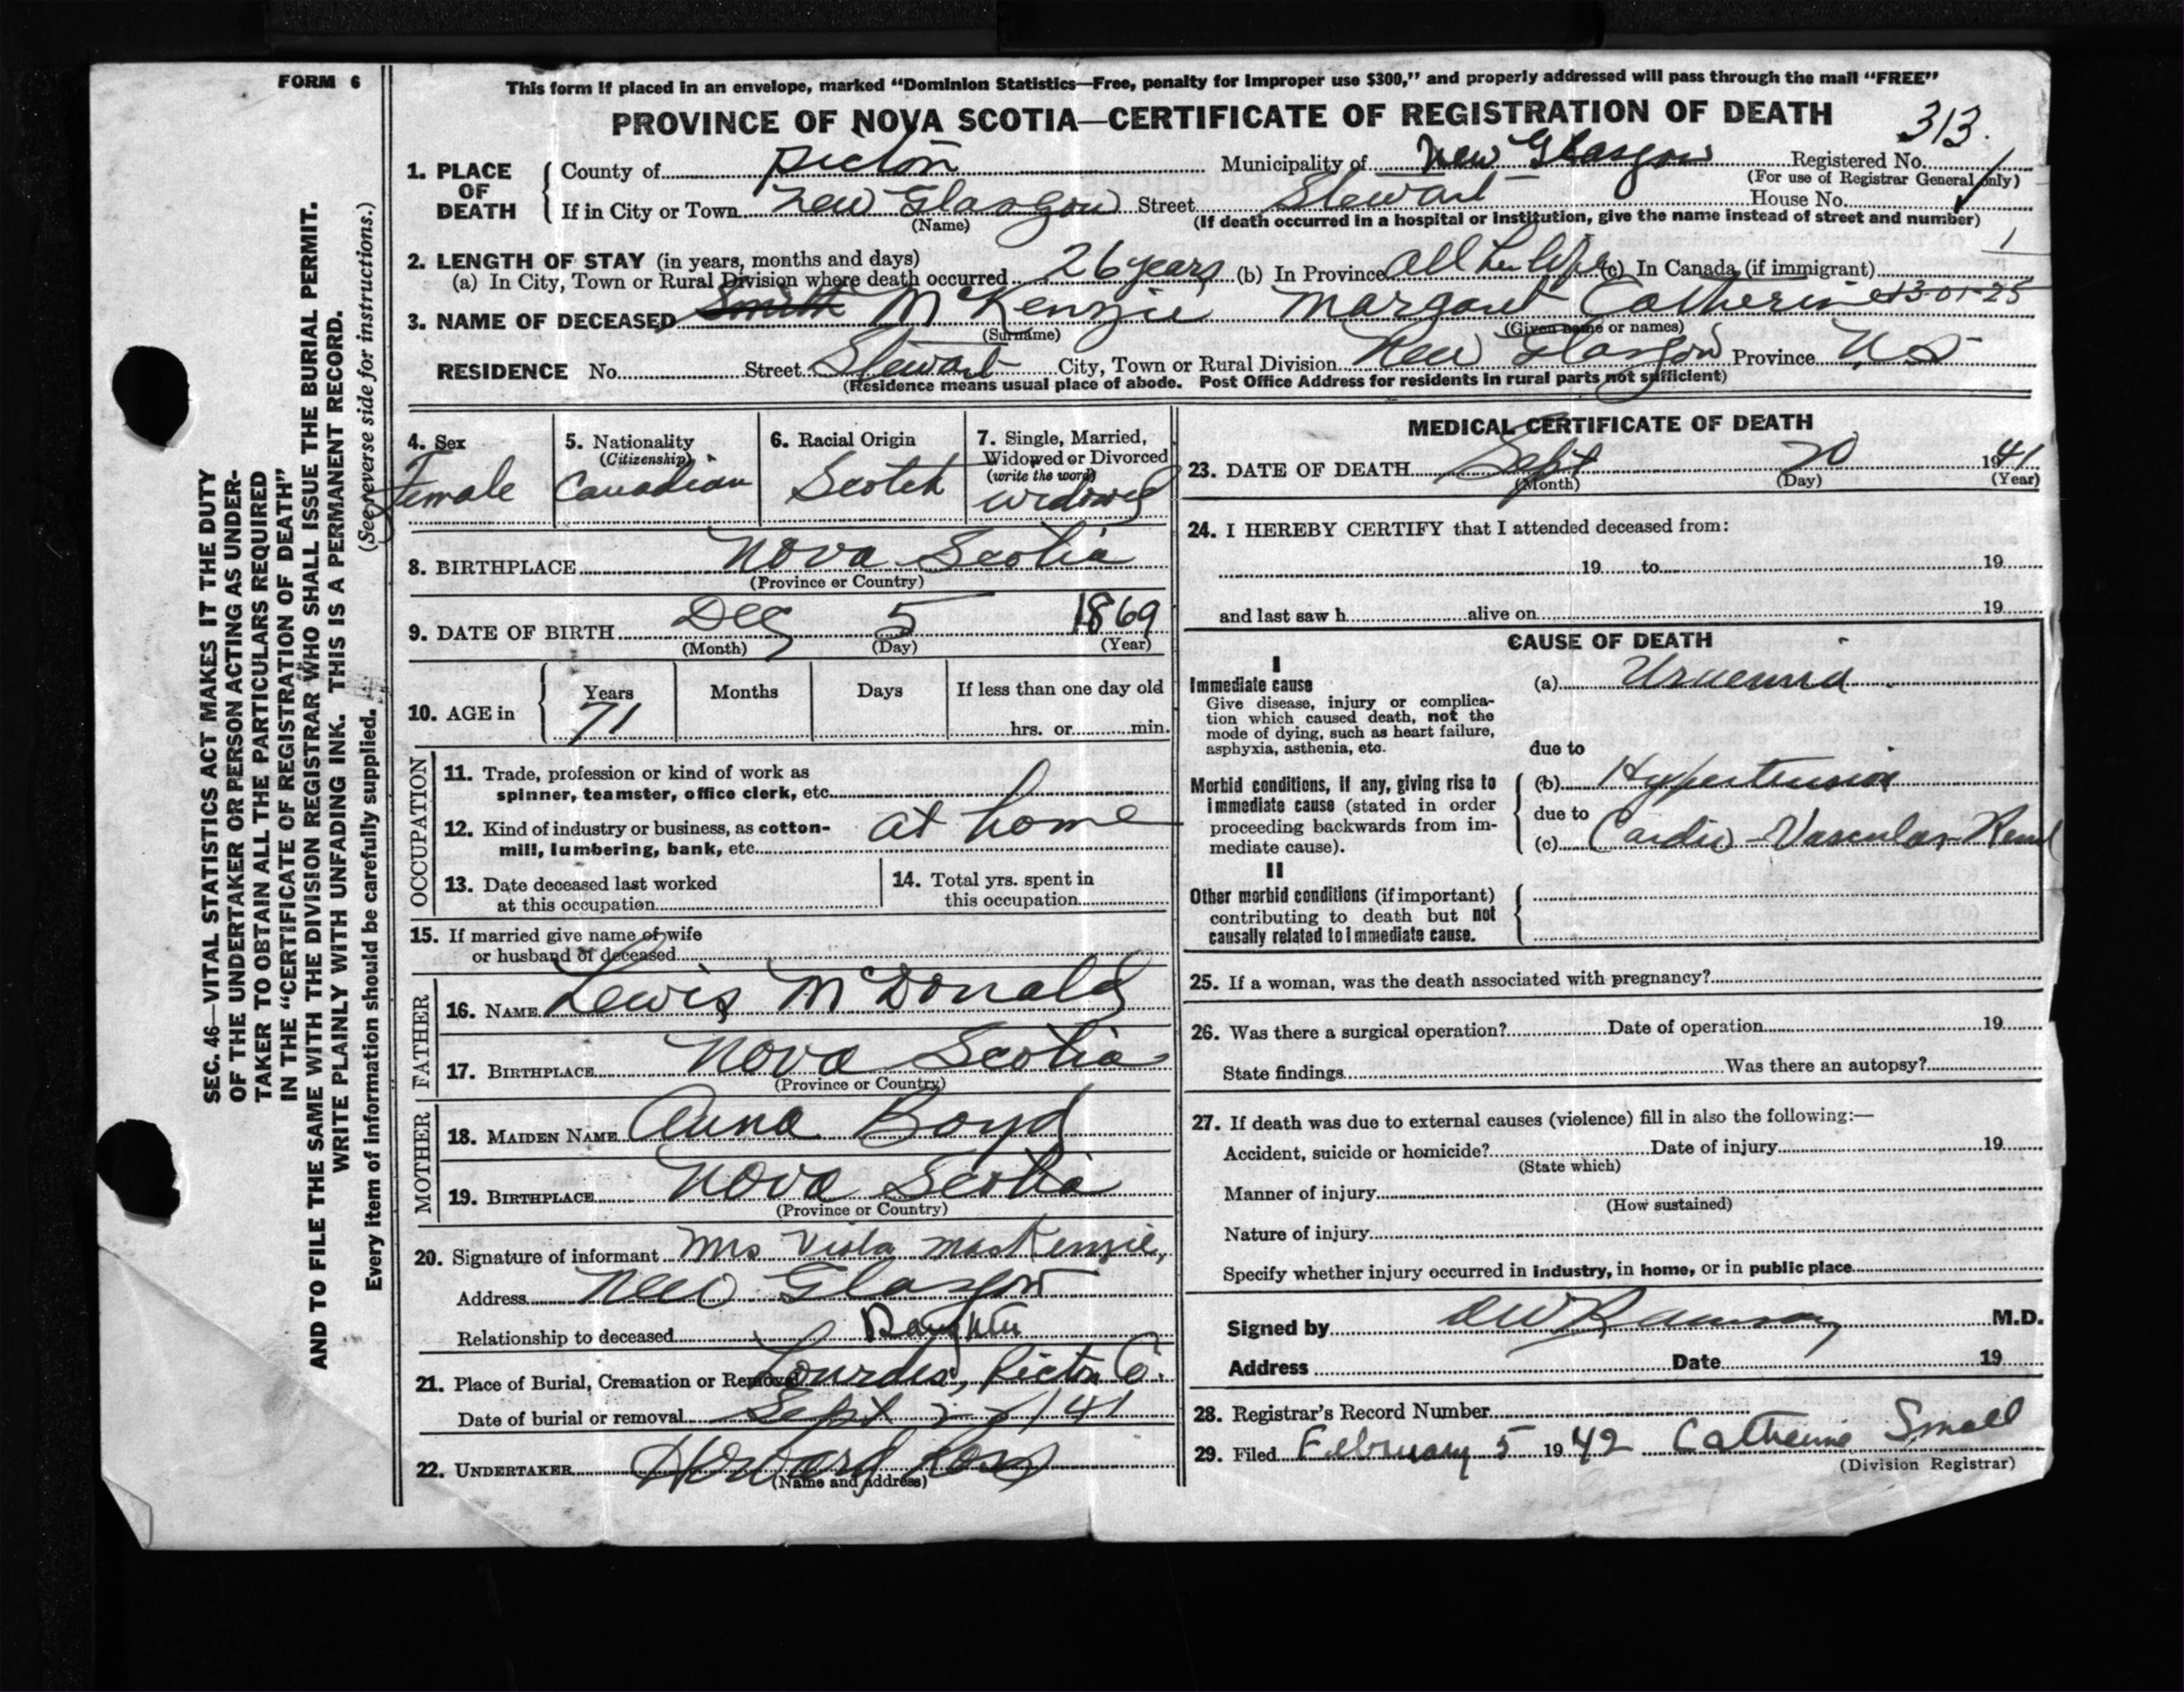 FORM 6
This form if placed in an envelope, marked "Dominion Statistics—Free, penalty for improper use $300," and properly addressed will pass through the mail "FREE"
PROVINCE OF NOVA SCOTIA—CERTIFICATE OF REGISTRATION OF DEATH
313.
1. PLACE OF DEATH
County of Pictou Municipality of New Glasgow Registered No.
(For use of Registrar General only)
If in City or Town New Glasgow Street Stewart House No.
(Name) (If death occurred in a hospital or institution, give the name instead of street and number)
1
2. LENGTH OF STAY (in years, months and days)
(a) In City, Town or Rural Division where death occurred 26 years (b) In Province All her life (c) In Canada (if immigrant)
3. NAME OF DECEASED Smith McKenzie Margaret Catherine 13-01-25
(Surname) (Given name or names)
RESIDENCE No. Street Stewart City, Town or Rural Division New Glasgow Province N.S
(Residence means usual place of abode. Post Office Address for residents in rural parts not sufficient)
4. Sex
Female
5. Nationality
(Citizenship)
Canadian
6. Racial Origin
Scotch
7. Single, Married,
Widowed or Divorced
(write the word)
widowed
8. BIRTHPLACE Nova Scotia
(Province or Country)
9. DATE OF BIRTH Dec 5 1869
(Month) (Day) (Year)
10. AGE in
Years Months Days If less than one day old
71
hrs. or min.
OCCUPATION
11. Trade, profession or kind of work as
spinner, teamster, office clerk, etc.
12. Kind of industry or business, as cotton-
mill, lumbering, bank, etc. at home
13. Date deceased last worked
at this occupation
14. Total yrs. spent in
this occupation
15. If married give name of wife
or husband of deceased
FATHER
16. NAME Lewis McDonald
17. BIRTHPLACE Nova Scotia
(Province or Country)
MOTHER
18. MAIDEN NAME Anna Boyd
19. BIRTHPLACE Nova Scotia
(Province or Country)
20. Signature of informant Mrs Viola MacKenzie,
Address New Glasgow
Relationship to deceased Daughter
21. Place of Burial, Cremation or Removal Lourdes, Pictou Co.
Date of burial or removal Sept 22/41
22. UNDERTAKER Howard Ross
(Name and address)
MEDICAL CERTIFICATE OF DEATH
23. DATE OF DEATH Sept 20 1941
(Month) (Day) (Year)
24. I HEREBY CERTIFY that I attended deceased from:
19 to 19
and last saw h alive on 19
CAUSE OF DEATH
I
Immediate cause
Give disease, injury or complica-
tion which caused death, not the
mode of dying, such as heart failure,
asphyxia, asthenia, etc.
(a) Uraemia
due to
Morbid conditions, if any, giving rise to
immediate cause (stated in order
proceeding backwards from im-
mediate cause).
(b) Hypertension
due to
(c) Cardio-Vascular-Renal
II
Other morbid conditions (if important)
contributing to death but not
causally related to immediate cause.
25. If a woman, was the death associated with pregnancy?
26. Was there a surgical operation? Date of operation 19
State findings Was there an autopsy?
27. If death was due to external causes (violence) fill in also the following:—
Accident, suicide or homicide? Date of injury 19
(State which)
Manner of injury
(How sustained)
Nature of injury
Specify whether injury occurred in industry, in home, or in public place
Signed by M.D.
Address Date 19
28. Registrar's Record Number
29. Filed February 5 1942 Catherine Small
(Division Registrar)
SEC. 46—VITAL STATISTICS ACT MAKES IT THE DUTY
OF THE UNDERTAKER OR PERSON ACTING AS UNDER-
TAKER TO OBTAIN ALL THE PARTICULARS REQUIRED
IN THE "CERTIFICATE OF REGISTRATION OF DEATH"
AND TO FILE THE SAME WITH THE DIVISION REGISTRAR WHO SHALL ISSUE THE BURIAL PERMIT.
WRITE PLAINLY WITH UNFADING INK. THIS IS A PERMANENT RECORD.
Every item of information should be carefully supplied. (See reverse side for instructions.)